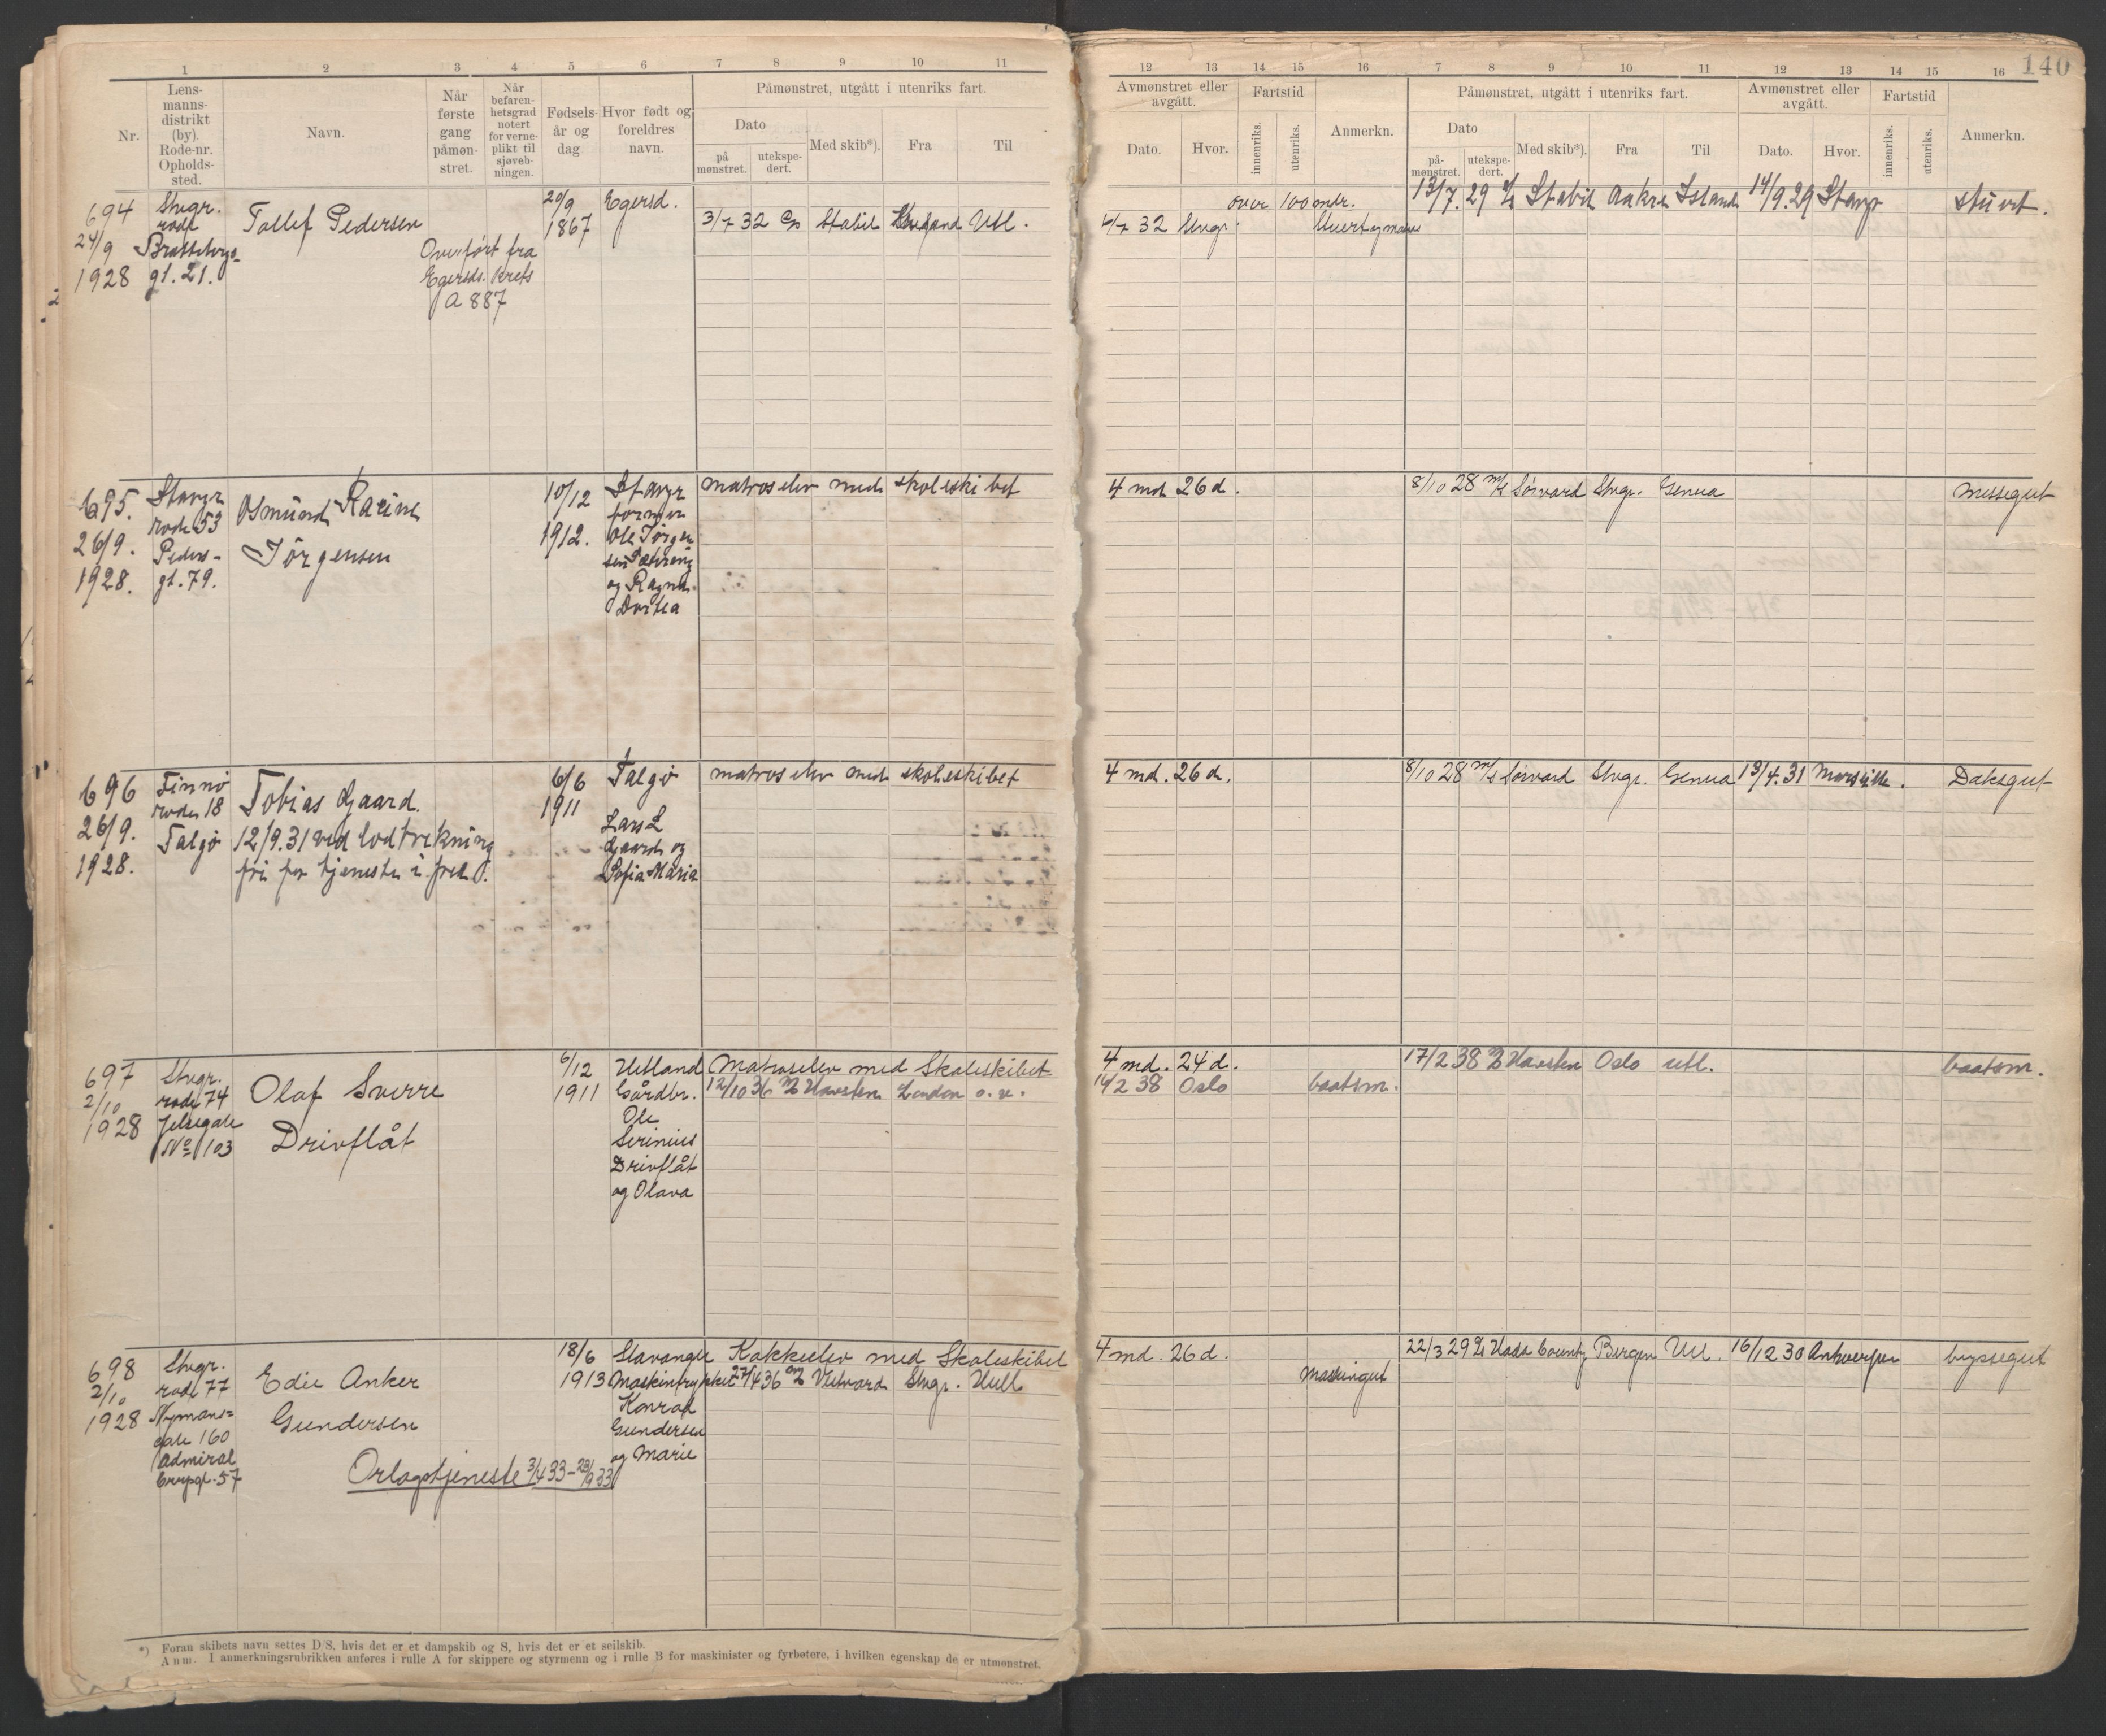 140
1 2 3 4 5 6 7 8 9 10 11
Nr.
Lens-
manns-
distrikt
(by).
Rode-nr.
Opholds-
sted.
Navn.
Når
første
gang
påmøn-
stret.
Når
befaren-
hetsgrad
notert
for verne-
plikt til
sjøveb-
ningen.
Fødsels-
år og
dag
Hvor født og
foreldres
navn.
Påmønstret, utgått i utenriks fart.
Dato
på
mønstret.
utekspe-
dert.
Med skib*).
Fra
Til
12 13 14 15 16 7 8 9 10 11 12 13 14 15 16
Avmønstret eller
avgått.
Dato.
Hvor.
Fartstid
innenriks.
utenriks.
Anmerkn.
Påmønstret, utgått i utenriks fart.
Dato
på-
mønstret.
utekspe-
dert.
Med skib*).
Fra
Til
Avmønstret eller
avgått.
Dato.
Hvor.
Fartstid
innenriks.
utenriks.
Anmerkn.
694
24/9
1928
Stvgr.
rode
gt. 21.
Tollef Pedersen
Overført fra
Egersds. krets
A 887
20/9
1867
Egersd.
3/7 32 Stabil Utl.
over 100 mdr.
6/7 32 Stvgr.
13/7. 29 Stabil Aakre Island 14/9. 29 Stavgr stuert.
695.
26/9.
1928.
Stavgr
rode 53
Peders-
gt. 79.
Osmund Racine
Jørgensen
10/12
1912.
Stavgr
former
Ole Jørgen
sen
og Ragna
Dortea
matroselev med skoleskibet
4 md 26 d.
8/10 28 m/s Sørvard Stvgr. Genua
messegut
696
26/9.
1928.
Finnø
rode 18
Talgø
Tobias Gaard.
12/9. 31 ved lodtrekning
fri for tjeneste i fred.
6/6
1911
Talgø
Lars L
Gaard og
Sofia Maria
matroselev med skoleskibet
4 md. 26 d.
8/10 28 m/s Sørvard Stvgr. Genua 13/4. 31 Marseille.
Daksgut
697
2/10
1928
Stvgr.
rode 74
Jelsegate
No 103
Olaf Sverre
Drivflåt
6/12
1911
Utland
Gårdbr.
Ole
Serinius
Drivflåt
og Olava
Matroselev med Skoleskibet
12/10 36 Havsten London o. v.
4 md. 24 d.
14/2 38 Oslo baatsm.
17/2 38 Havsten Oslo utl.
baatsm.
698
2/10
1928
Stvgr.
rode 77
Nymans-
gate 160
Admiral
Edie Anker
Gundersen
Orlogstjeneste 3/4 33 - 23/9 33
18/6
1913
Stavanger
Konrad
Gundersen
og Marie
Kokkelev med Skoleskibet
27/4 36 Stvgr. Hull
4 md. 26 d.
22/3 29 County Bergen Utl. 16/12 30 Antwerpen
byssegut
*) Foran skibets navn settes D/S, hvis det er et dampskib og S, hvis det er et seilskib.
Anm. I anmerkningsrubrikken anføres i rulle A for skippere og styrmenn og i rulle B for maskinister og fyrbøtere, i hvilken egenskap de er utmønstret.